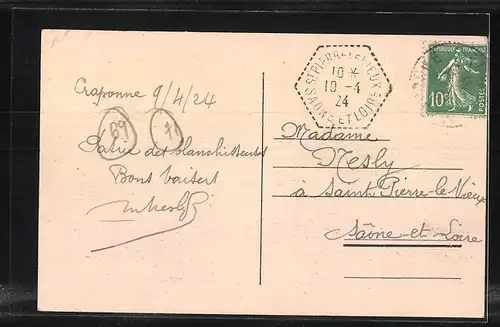 Craponne 9/4/24
69
Patrie des blanchisseuses
Bons baisers
ST PIERRE-LE-VIEUX
10 *
10 - 4
24
SAONE ET LOIRE
REPUBLIQUE FRANÇAISE
10c
POSTES
Madame
Nesly
à Saint Pierre-le-Vieux
Saône-et-Loire